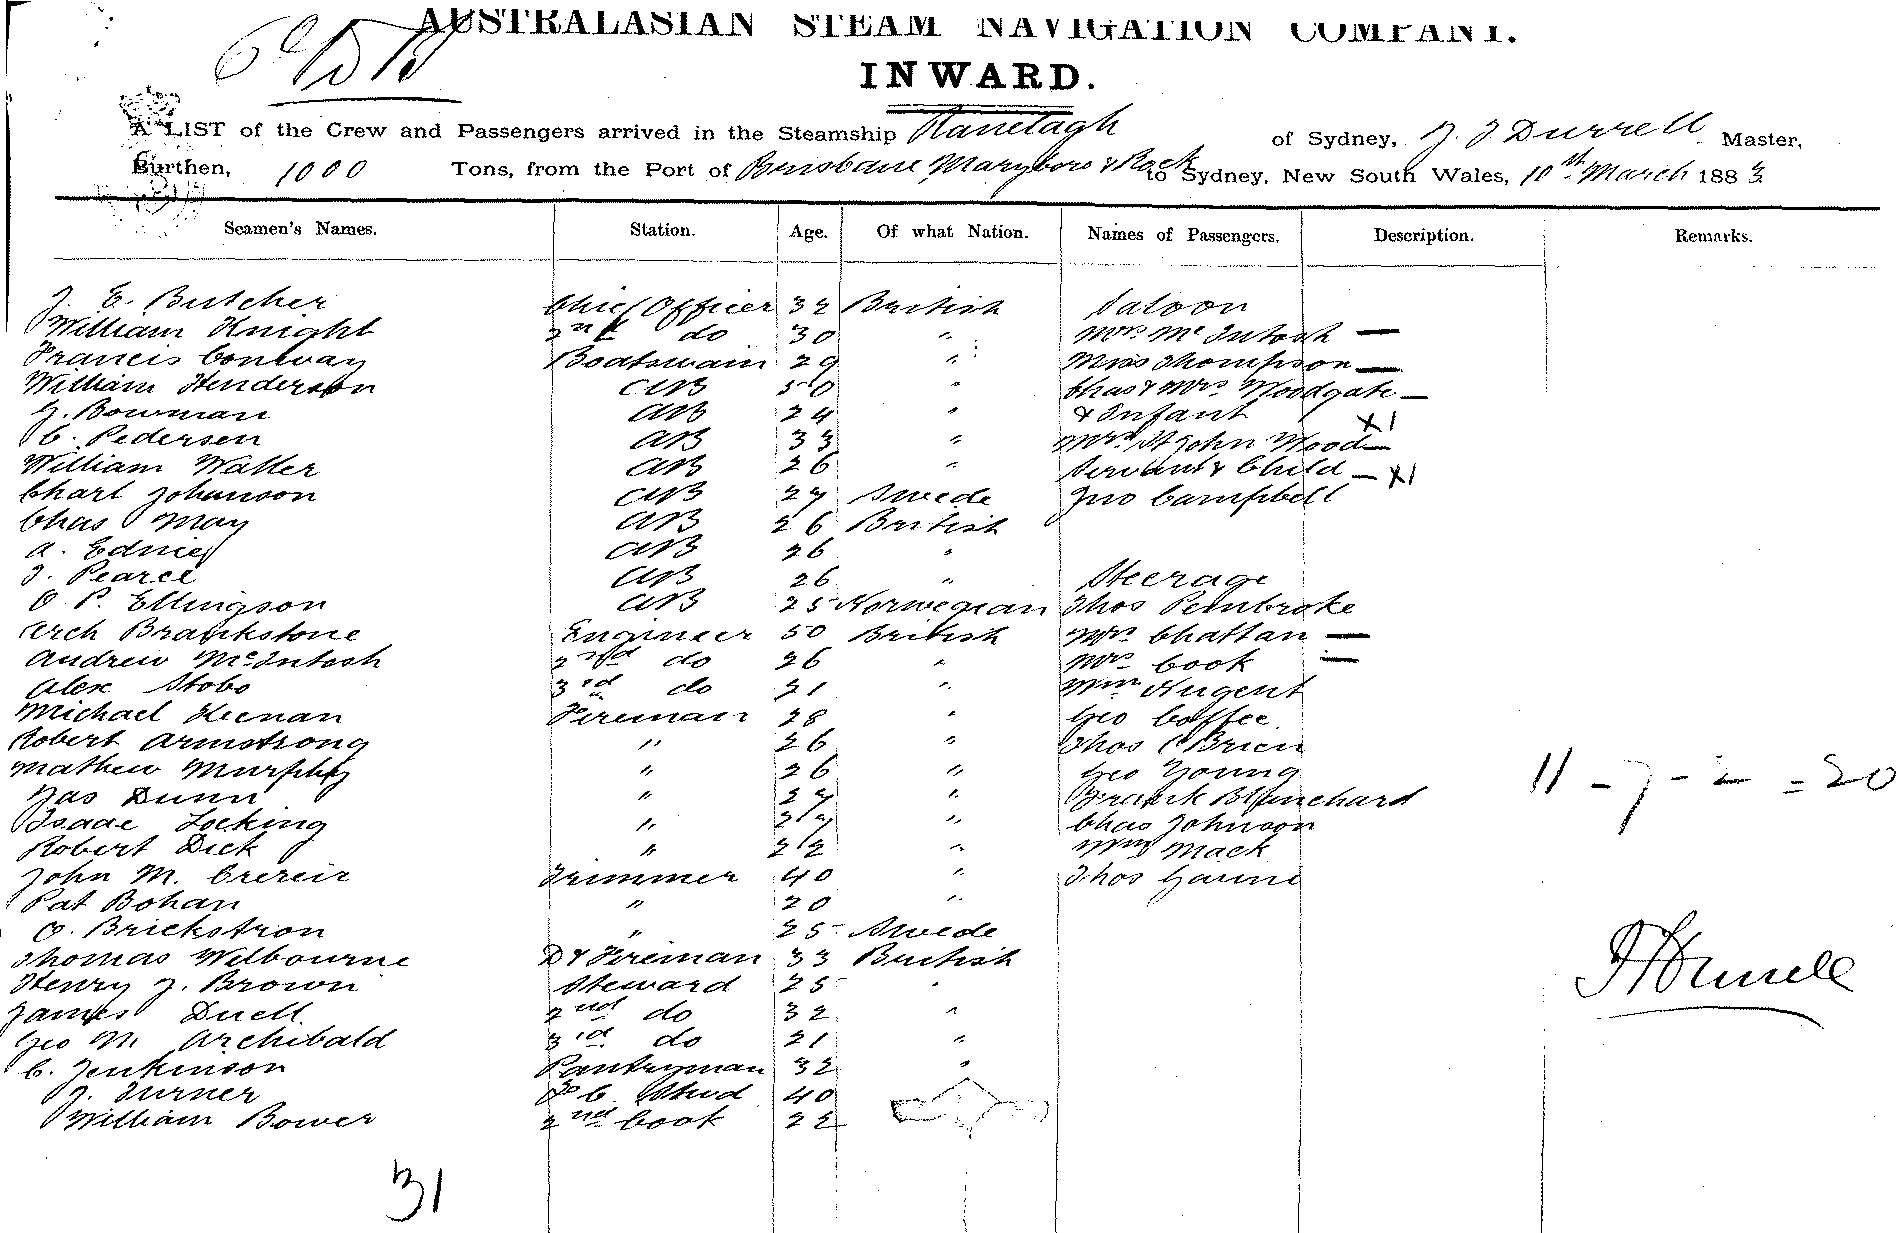 AUSTRALASIAN STEAM NAVIGATION COMPANY.
INWARD.
A LIST of the Crew and Passengers arrived in the Steamship Ranelagh of Sydney, J. J Durrell Master,
Burthen, 1000 Tons, from the Port of Brisbane Maryboro & Rock to Sydney, New South Wales, 10th March 1883
Seamen's Names. Station. Age. Of what Nation. Names of Passengers. Description. Remarks.
J. E. Butcher Chief Officer 32 British Saloon
William Knight 2nd do 30 " Mrs McIntosh —
Francis Conway Boatswain 29 " Miss Thompson —
William Henderson AB 50 " Chas & Mrs Woodgate —
G. Bowman AB 24 " & Infant X1
C. Pedersen AB 33 " Mrs St John Wood —
William Walter AB 26 " Servant & Child — X1
Charl Johanson AB 27 Swede Jno Campbell
Chas May AB 26 British
A. AB 26 "
J. Pearce AB 26 " Steerage
O. P. Ellingson AB 25 Norwegian Thos Pembroke
Arch Brankstone Engineer 50 British Mrs Chattan —
Andrew McIntosh 2nd do 26 " Mrs Cook —
Alex Stobo 3rd do 21 " Wm Nugent
Michael Keenan Fireman 28 " Geo Coffee
Robert Armstrong " 26 " Thos O'Brien
Mathew Murphy " 26 " Geo Young
Jas Dunn " 27 " Frank Blanchard 11 - 7 - 2 = 20
Isaac Locking " 27 " Chas Johnson
Robert Dick " 22 " Wm Mack
John M. Trimmer 40 " Thos
Pat Bohan " 20 "
O. Brickstron " 25 Swede
Thomas Welbourne D & Fireman 33 British
Henry J. Brown Steward 25 "
James Duell 2nd do 32 "
Geo M Archibald 3rd do 21 "
C. Jenkinson Pantryman 32 "
J. Turner F C Stwd 40
William Bower 2nd Cook 22
31